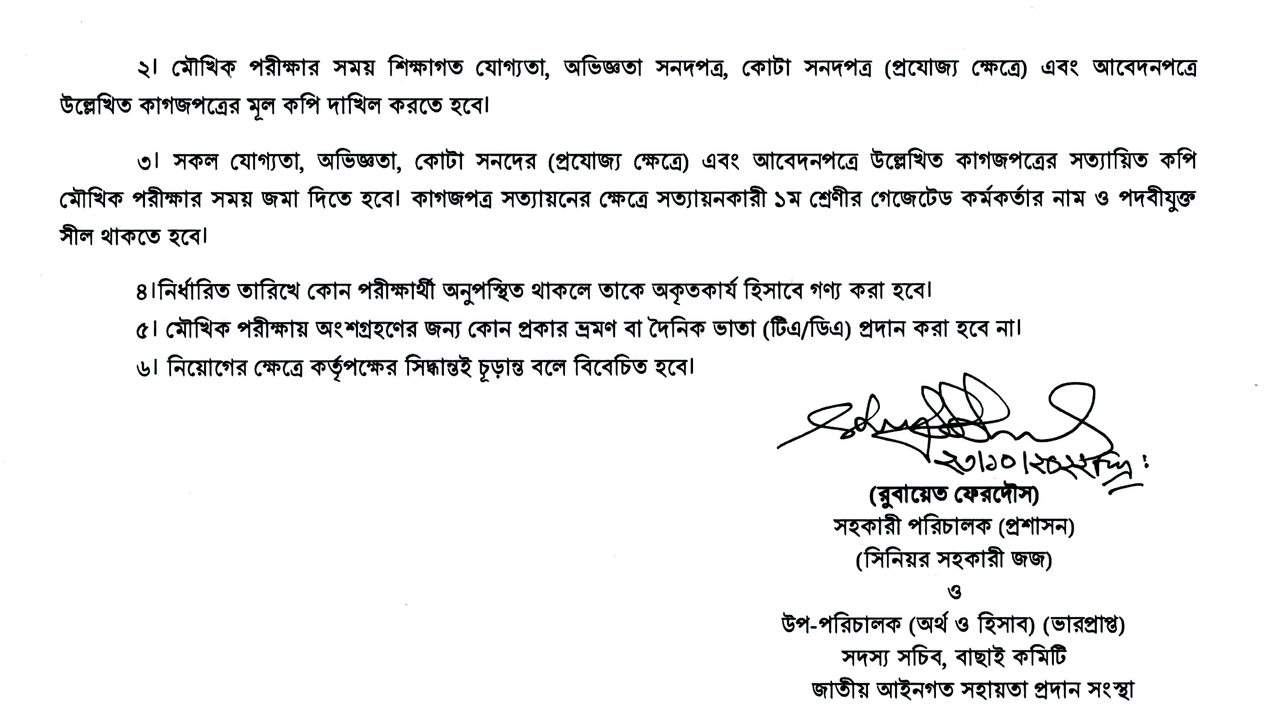 ২। মৌখিক পরীক্ষার সময় শিক্ষাগত যোগ্যতা, অভিজ্ঞতা সনদপত্র, কোটা সনদপত্র (প্রযোজ্য ক্ষেত্রে) এবং আবেদনপত্রে
উল্লেখিত কাগজপত্রের মূল কপি দাখিল করতে হবে।
৩। সকল যোগ্যতা, অভিজ্ঞতা, কোটা সনদের (প্রযোজ্য ক্ষেত্রে) এবং আবেদনপত্রে উল্লেখিত কাগজপত্রের সত্যায়িত কপি
মৌখিক পরীক্ষার সময় জমা দিতে হবে। কাগজপত্র সত্যায়নের ক্ষেত্রে সত্যায়নকারী ১ম শ্রেণীর গেজেটেড কর্মকর্তার নাম ও পদবীযুক্ত
সীল থাকতে হবে।
৪।নির্ধারিত তারিখে কোন পরীক্ষার্থী অনুপস্থিত থাকলে তাকে অকৃতকার্য হিসাবে গণ্য করা হবে।
৫। মৌখিক পরীক্ষায় অংশগ্রহণের জন্য কোন প্রকার ভ্রমণ বা দৈনিক ভাতা (টিএ/ডিএ) প্রদান করা হবে না।
৬। নিয়োগের ক্ষেত্রে কর্তৃপক্ষের সিদ্ধান্তই চূড়ান্ত বলে বিবেচিত হবে।
২৩/১০/২০২২
(রুবায়েত ফেরদৌস)
সহকারী পরিচালক (প্রশাসন)
(সিনিয়র সহকারী জজ)
ও
উপ-পরিচালক (অর্থ ও হিসাব) (ভারপ্রাপ্ত)
সদস্য সচিব, বাছাই কমিটি
জাতীয় আইনগত সহায়তা প্রদান সংস্থা